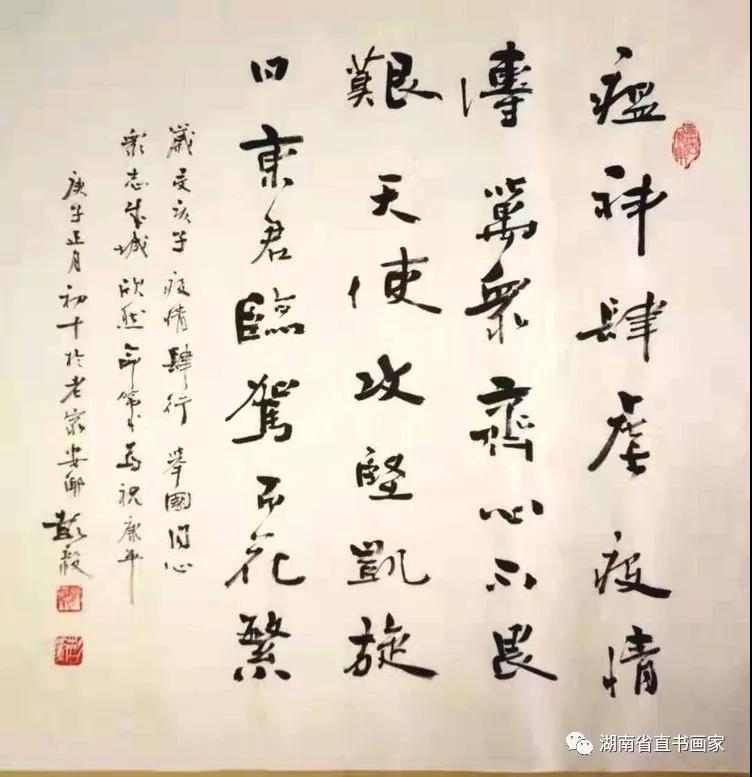 瘟神肆虐疫情
傳萬衆齊心不畏
艱天使攻堅凱旋
日東君臨駕百花繁
歲交亥子疫情肆行舉國同心
衆志成城欣然命筆以為祝康平
庚子正月初十於老家安鄉彭毅
湖南省直书画家